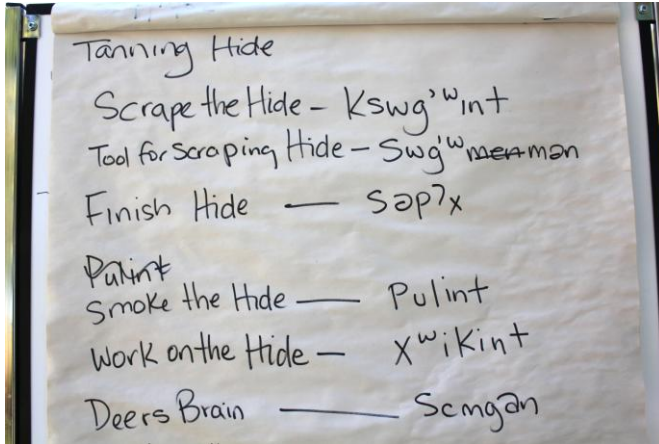 Tanning Hide
Scrape the Hide – Kswg̓ʷint
Tool for Scraping Hide – Swg̓ʷmən
Finish Hide — Səpʔx
Pulint
Smoke the Hide — Pulint
Work on the Hide – xʷiKint
Deers Brain — Scmgən